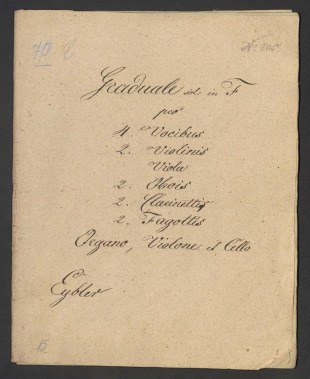 Graduale sol: in F
pro
4. Vocibus
2. Violinis
Viola
2. Obois
2. Clarinettis
2. Fagottis
Organo, Violone et Cello
Eybler